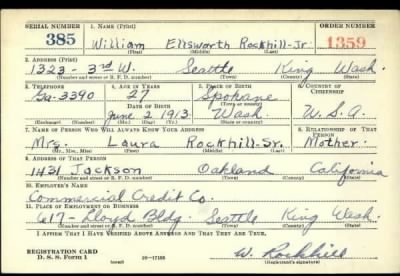 SERIAL NUMBER 1. NAME (Print) ORDER NUMBER
385 William Ellsworth Rockhill-Jr. 1359
(First) (Middle) (Last)
2. ADDRESS (Print)
1323 - 3rd W. Seattle King Wash.
(Number and street or R. F. D. number) (Town) (County) (State)
3. TELEPHONE 4. AGE IN YEARS 5. PLACE OF BIRTH 6. COUNTRY OF CITIZENSHIP
Ga-3390 27 Spokane
DATE OF BIRTH (Town or county)
June 2 1913 Wash. U.S.A.
(Exchange) (Number) (Mo.) (Day) (Yr.) (State or country)
7. NAME OF PERSON WHO WILL ALWAYS KNOW YOUR ADDRESS 8. RELATIONSHIP OF THAT PERSON
Mrs. Laura Rockhill-Sr. Mother.
(Mr., Mrs., Miss) (First) (Middle) (Last)
9. ADDRESS OF THAT PERSON
1431 Jackson Oakland California
(Number and street or R. F. D. number) (Town) (County) (State)
10. EMPLOYER'S NAME
Commercial Credit Co.
11. PLACE OF EMPLOYMENT OR BUSINESS
617- Lloyd Bldg. Seattle King Wash.
(Number and street or R. F. D. number) (Town) (County) (State)
I AFFIRM THAT I HAVE VERIFIED ABOVE ANSWERS AND THAT THEY ARE TRUE.
REGISTRATION CARD
D. S. S. Form 1 16-17105 W. Rockhill
(over)